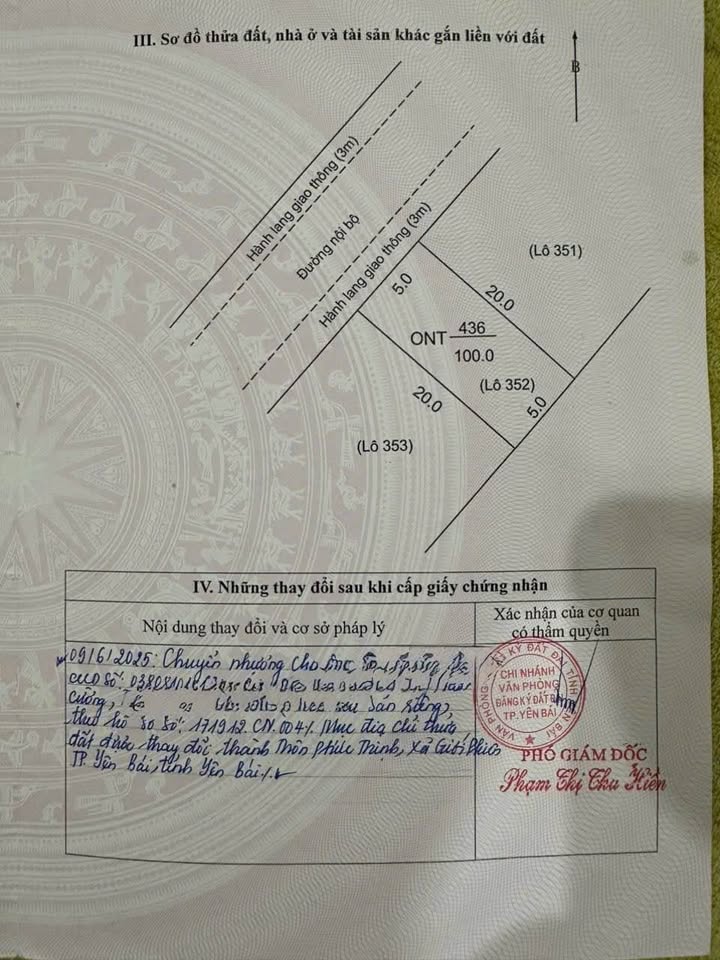 III. Sơ đồ thửa đất, nhà ở và tài sản khác gắn liền với đất
B
Hành lang giao thông (3m)
Đường nội bộ
Hành lang giao thông (3m)
(Lô 351)
5.0
20.0
ONT 436
100.0
(Lô 352)
20.0
5.0
(Lô 353)
IV. Những thay đổi sau khi cấp giấy chứng nhận
Nội dung thay đổi và cơ sở pháp lý
Xác nhận của cơ quan
có thẩm quyền
09/6/2025: Chuyển nhượng cho ông
CCCD số:
Cường,
theo hồ sơ số: 171912.CN.004. Mục địa chỉ thửa
đất được thay đổi thành Thôn Phúc Thịnh, xã Giới Phiên
TP. Yên Bái, tỉnh Yên Bái./.
VĂN PHÒNG ĐĂNG KÝ ĐẤT ĐAI TỈNH YÊN BÁI
CHI NHÁNH
VĂN PHÒNG
ĐĂNG KÝ ĐẤT ĐAI
TP. YÊN BÁI
PHÓ GIÁM ĐỐC
Phạm Thị Thu Hiền